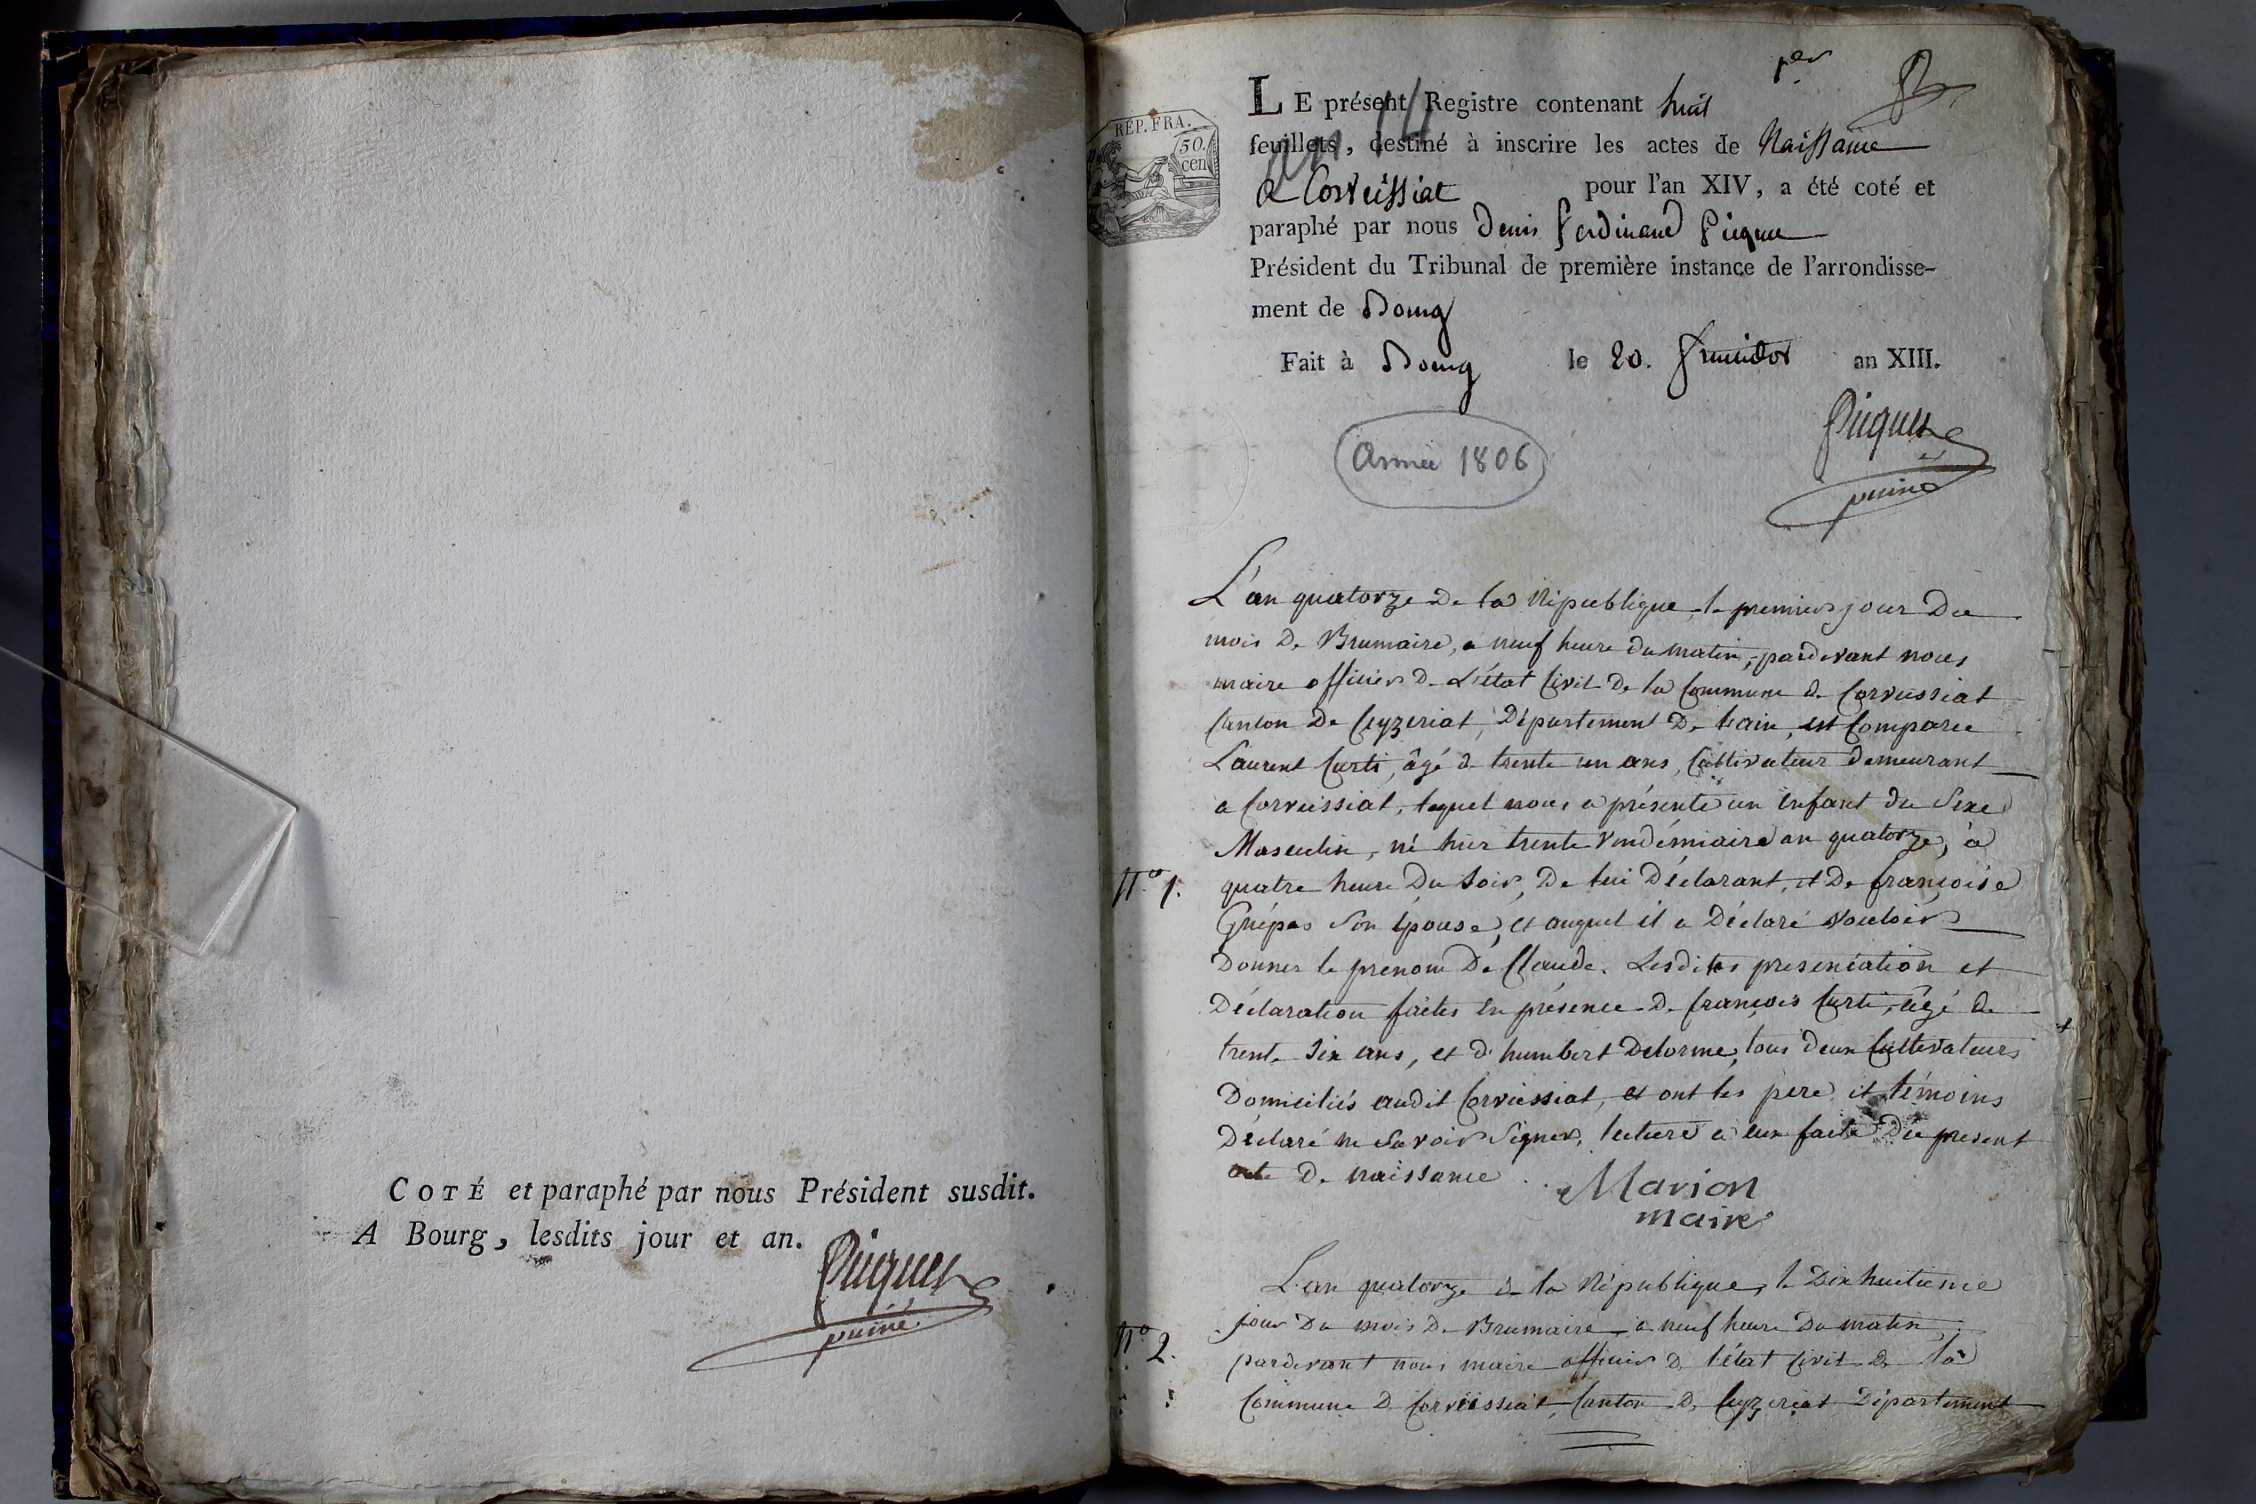 COTÉ et paraphé par nous Président susdit.
A Bourg, lesdits jour et an.
Picquet
puiné
1er
REP. FRA.
50.
cen
an 14
LE présent Registre contenant huit
feuillets, destiné à inscrire les actes de Naissance
a Corveissiat pour l'an XIV, a été coté et
paraphé par nous Denis Ferdinand Picquet
Président du Tribunal de première instance de l'arrondisse-
ment de Bourg
Fait à Bourg le 20. fructidor an XIII.
Picquet
puiné
Année 1806
L'an quatorze De la République, le premier jour Du
mois De Brumaire, a neuf heure du matin, pardevant nous
maire officier De L'état Civil De la Commune de Corveissiat
Canton De Ceyzeriat, Département De lain, est Comparu
Laurent Curti, âgé de trente un ans, Cultivateur Demeurant
a Corveissiat, lequel nous a présenté un Enfant du Sexe
Masculin, né hier trente Vendémiaire an quatorze, à
N.o 1. quatre heure Du Soir, De lui Déclarant, et De françoise
Grépas Son épouse, et auquel il a Déclaré vouloir
Donner le prenom De Claude. Lesdites presentation et
Déclaration faites En présence De françois Curti, âgé de
trente Six ans, et d'humbert Delorme, tous Deux Cultivateurs
Domiciliés audit Corveissiat, et ont les pere et témoins
Déclaré ne Savoir Signer, lecture a eux faite Du present
acte De naissance
Marion
maire
L'an quatorze de la République, le Dix huitieme
N.o 2. jour Du mois De Brumaire a neuf heure Du matin,
pardevant nous maire officier De l'état Civil De la
Commune De Corveissiat Canton De Ceyzeriat Département